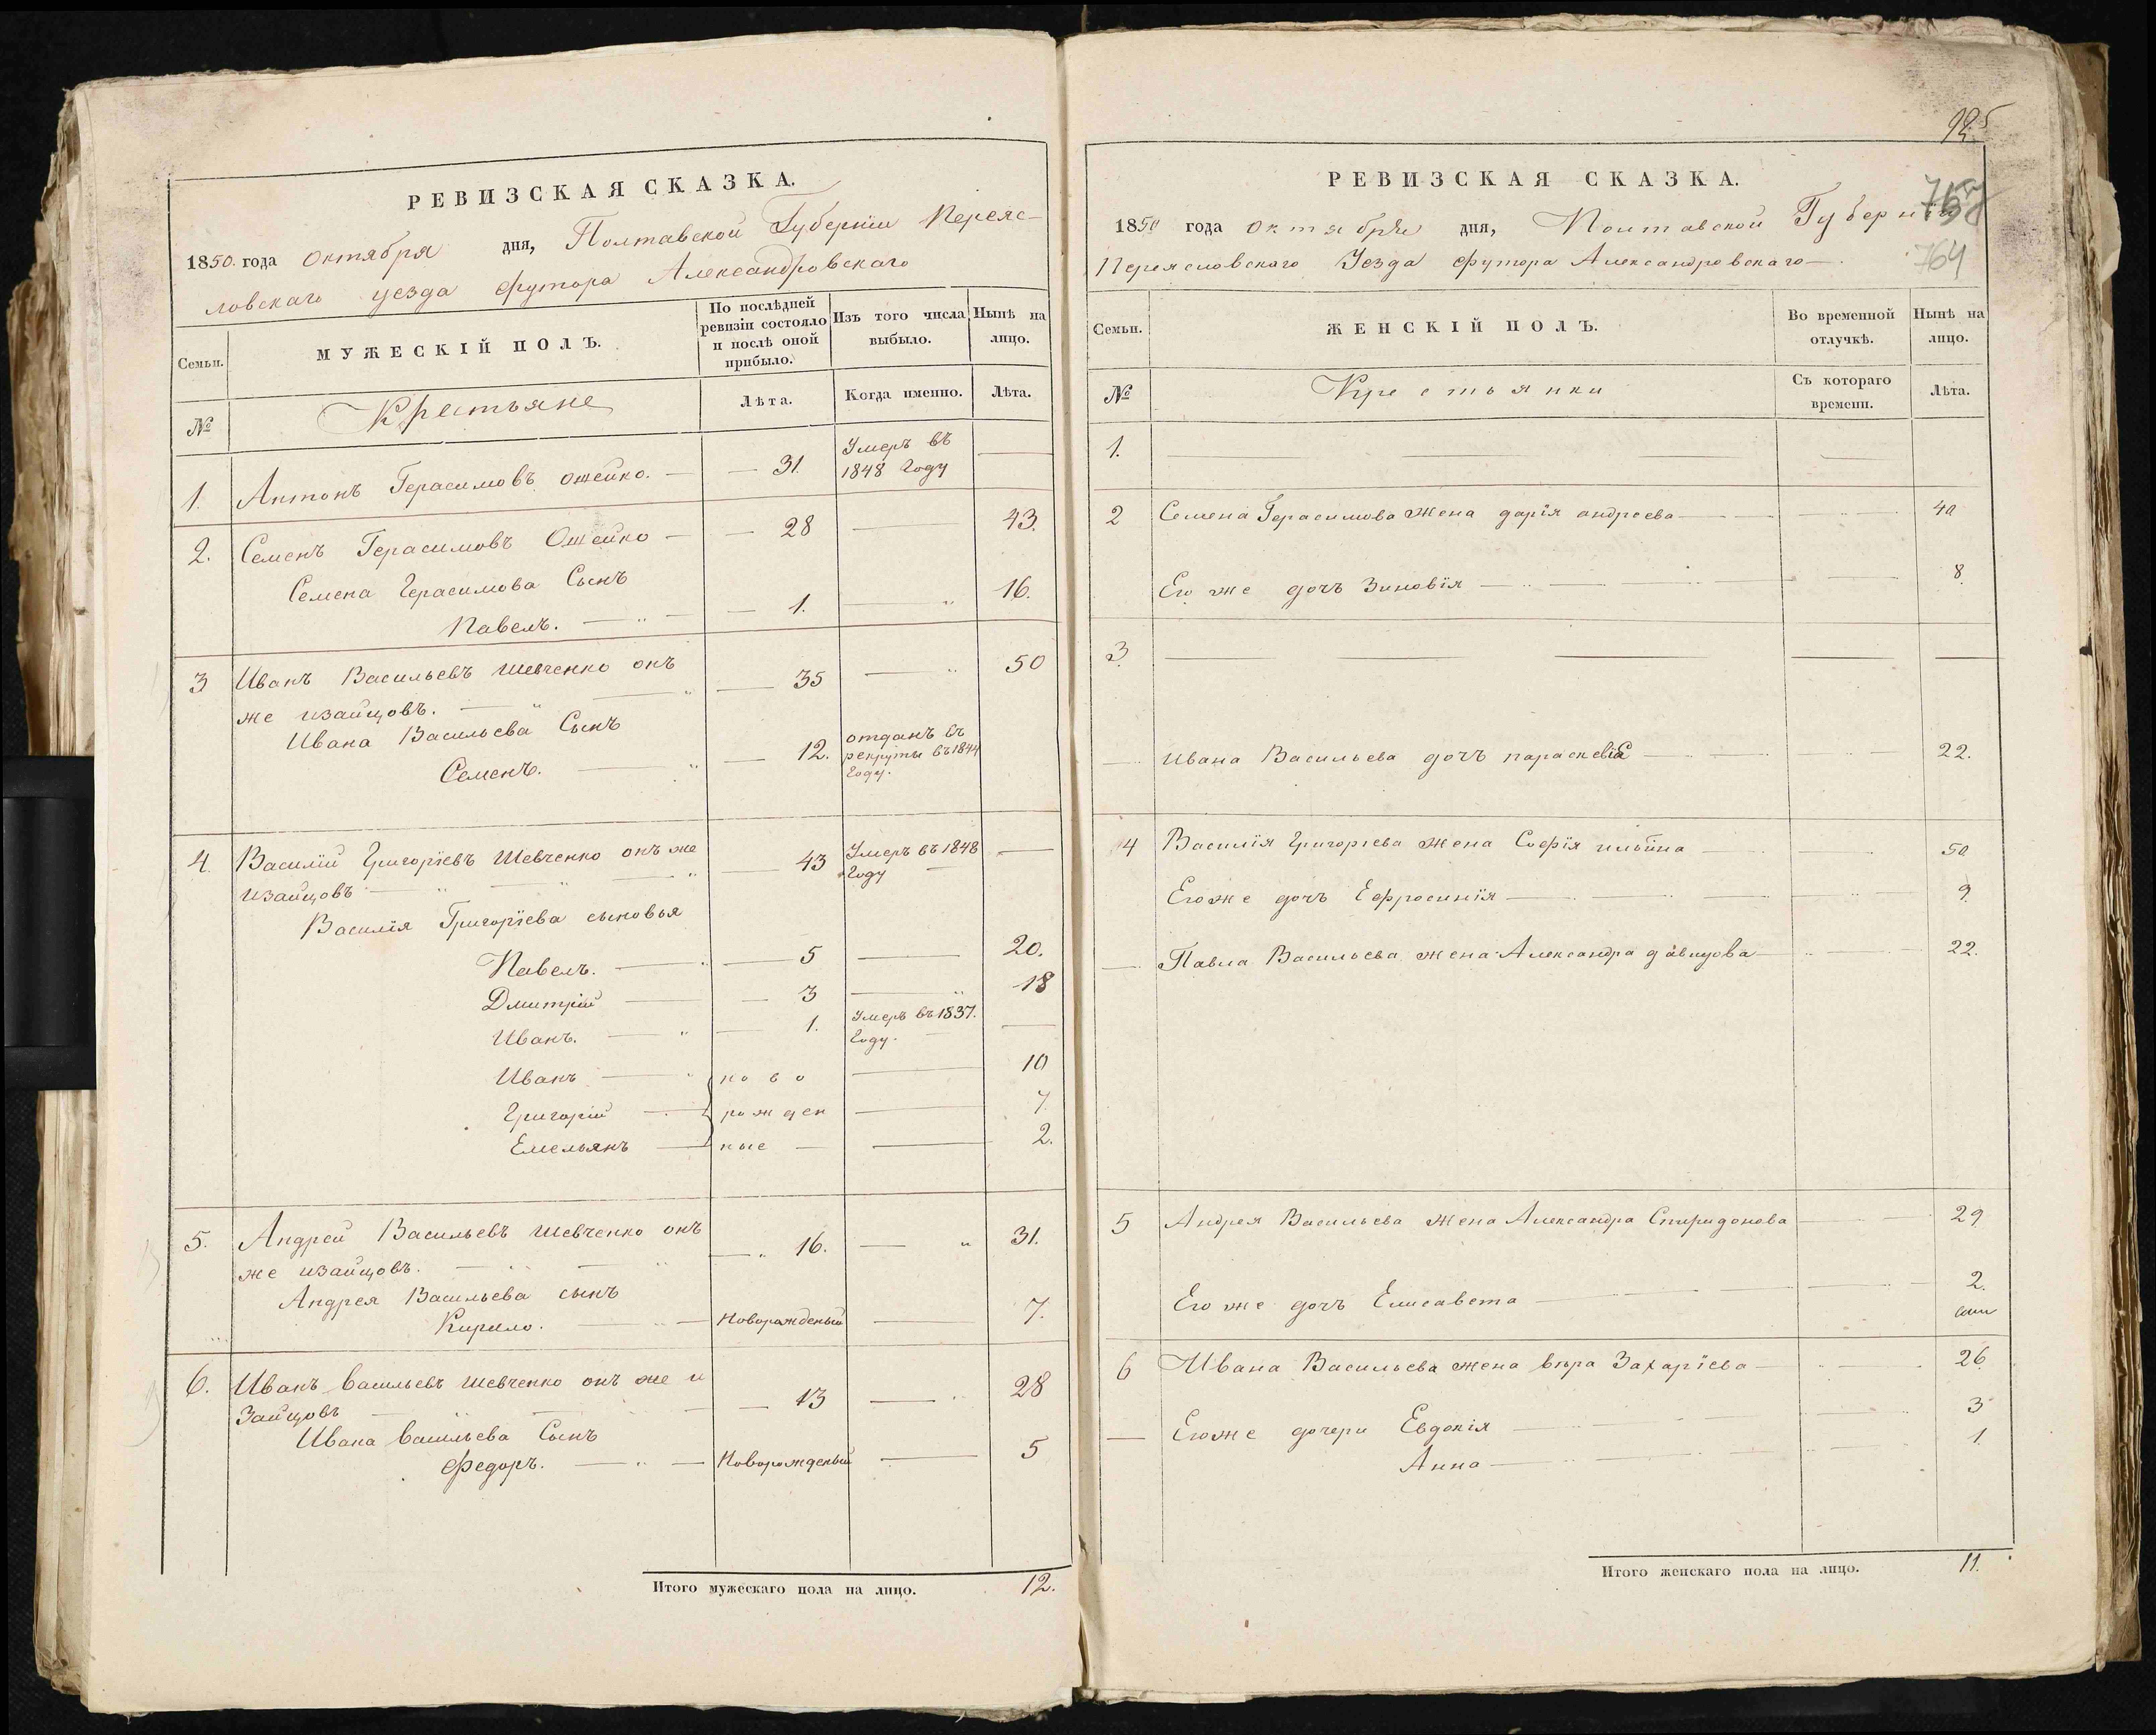 РЕВИЗСКАЯ СКАЗКА.
1850. года октября дня, Полтавской Губернии Переяс-
ловскаго уезда футора Александровскаго
Семьи.
МУЖЕСКІЙ ПОЛЪ.
По послѣдней ревизіи состояло и послѣ оной прибыло.
Изъ того числа выбыло.
Нынѣ на лицо.
№
Крестьяне
Лѣта.
Когда именно.
Лѣта.
1. Антонъ Герасимовъ ошейко. — 31. Умеръ въ
1848 Году
2. Семенъ Герасимовъ Ошейко — 28 — 43.
Семена Герасимова Сынъ
Павелъ. — 1. — 16.
3 Иванъ Васильевъ Шевченко онъ — 35 — 50
же изайцовъ.
Ивана Васильева Сынъ
Семенъ. — 12. отданъ въ
рекруты въ 1844
Году.
4. Василій Григорїевъ Шевченко онъ же — 43 Умеръ въ 1848 —
изайцовъ Году
Василїя Григорїева сыновья
Павелъ. — 5 — 20.
Дмитрій — 3 — 18
Иванъ. — 1. Умеръ въ 1837. —
Году.
Иванъ — ново — 10
Григорій — рожден — 7
Емельянъ — ные — 2.
5. Андрей Васильевъ Шевченко онъ — 16. — 31.
же изайцовъ.
Андрея Васильева сынъ
Кирило. — Новорожденый — 7.
6. Иванъ Васильевъ Шевченко онъ же и — 13 — 28
Зайцовъ
Ивана Васильева Сынъ
Федоръ. — Новорожденый — 5
Итого мужескаго пола на лицо. 12.
РЕВИЗСКАЯ СКАЗКА.
1850 года октября дня, Полтавской Губернии
Переясловскаго Уезда Футора Александровскаго —
764
Семьи.
ЖЕНСКІЙ ПОЛЪ.
Во временной отлучкѣ.
Нынѣ на лицо.
№
Крестьянки
Съ котораго времени.
Лѣта.
1. —
2 Семена Герасимова Жена дарїя андреева — 40
Его же дочъ Зиновїя — 8.
3 —
— Ивана Васильева дочъ параскевїя — 22.
4 Василїя Григорїева жена Софїя ильина — 50
Его же дочъ Ефросинїя — 9
— Павла Васильева жена Александра давидова — 22.
5 Андрея Васильева жена Александра Спиридонова — 29
Его же дочъ Елисавета — 2.
6 Ивана Васильева жена вѣра Захарїева — 26.
— Его же дочери Евдокїя — 3
Анна — 1.
Итого женскаго пола на лицо. 11.